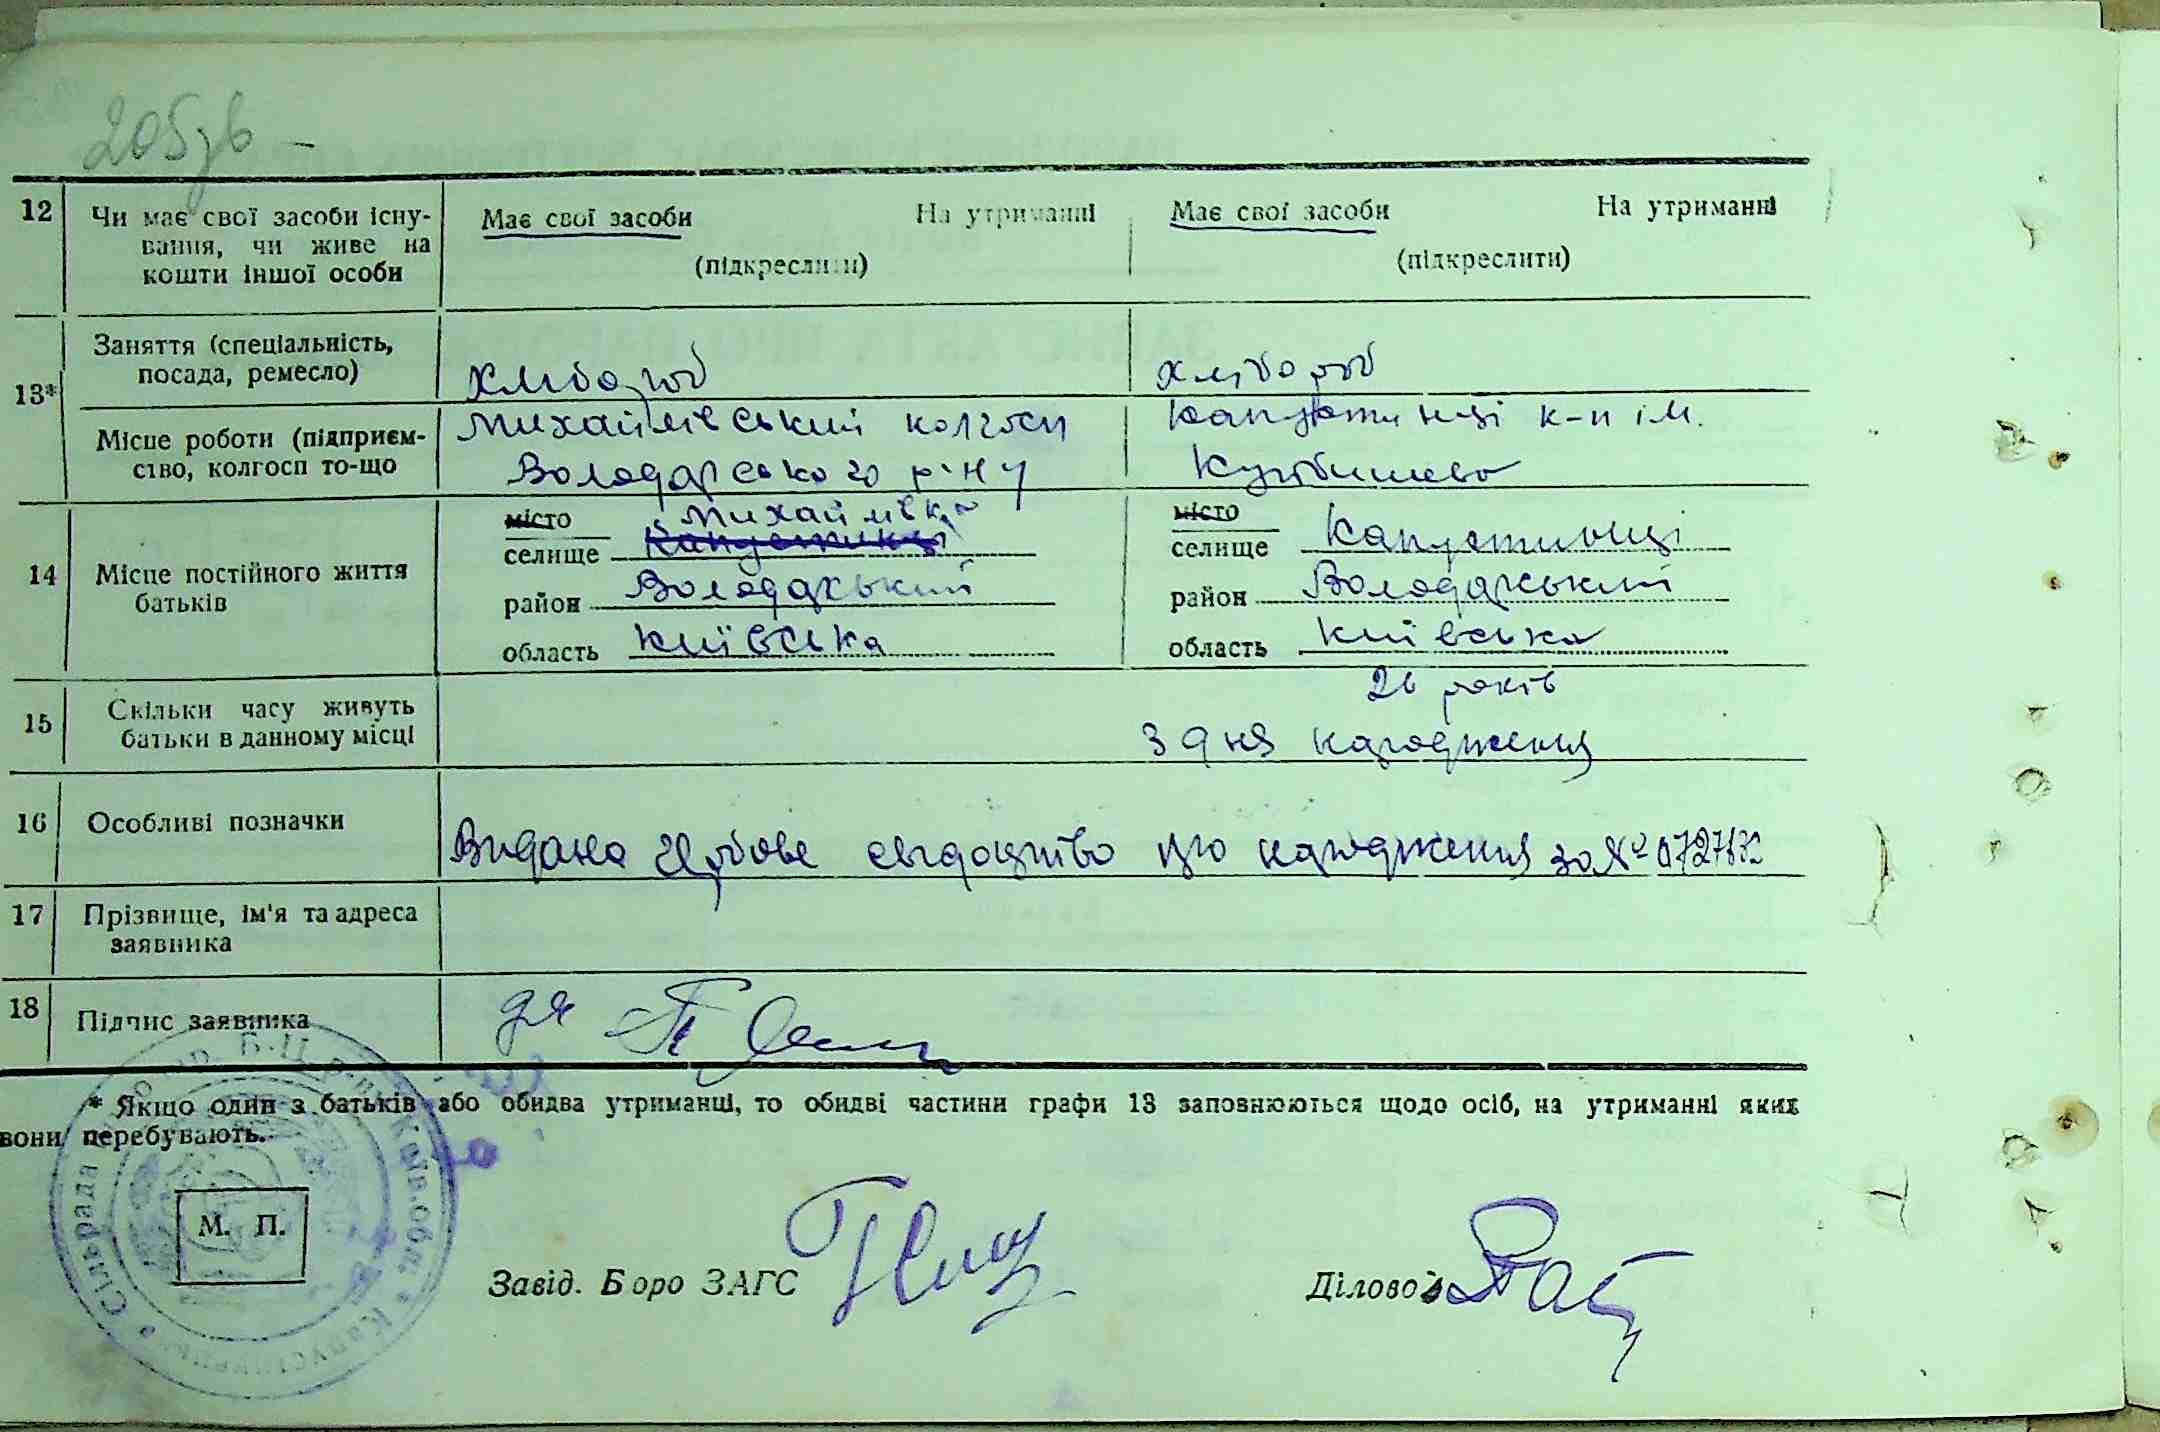 205зв
12 Чи має свої засоби існу- Має свої засоби На утриманні Має свої засоби На утриманні
вання, чи живе на (підкреслити) (підкреслити)
кошти іншої особи
13* Заняття (спеціальність,
посада, ремесло) хлібороб хлібороб
Місце роботи (підприєм- Михайлівський колгосп Капустинці к-п ім.
ство, колгосп то-що Володарського р-ну Куйбишева
14 Місце постійного життя батьків
місто Михайлівка місто
селище Капустинці селище Капустинці
район Володарський район Володарський
область Київська область Київська
26 років
15 Скільки часу живуть
батьки в данному місці з дня народження
16 Особливі позначки
Видано гербове свідоцтво про народження за №
17 Прізвище, ім'я та адреса
заявника
18 Підпис заявника
* Якщо один з батьків або обидва утриманці, то обидві частини графи 13 заповнюються щодо осіб, на утриманні яких
вони перебувають.
М. П.
Завід. Бюро ЗАГС Діловод
Сільрада Б-Ц р-н Київ. обл.